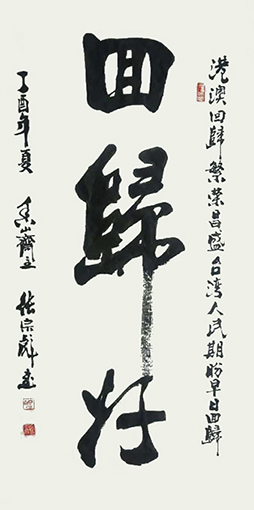 港澳回歸繁荣昌盛台湾人民期盼早日回歸
回歸好
丁酉年夏 山齋主 张宗彪书